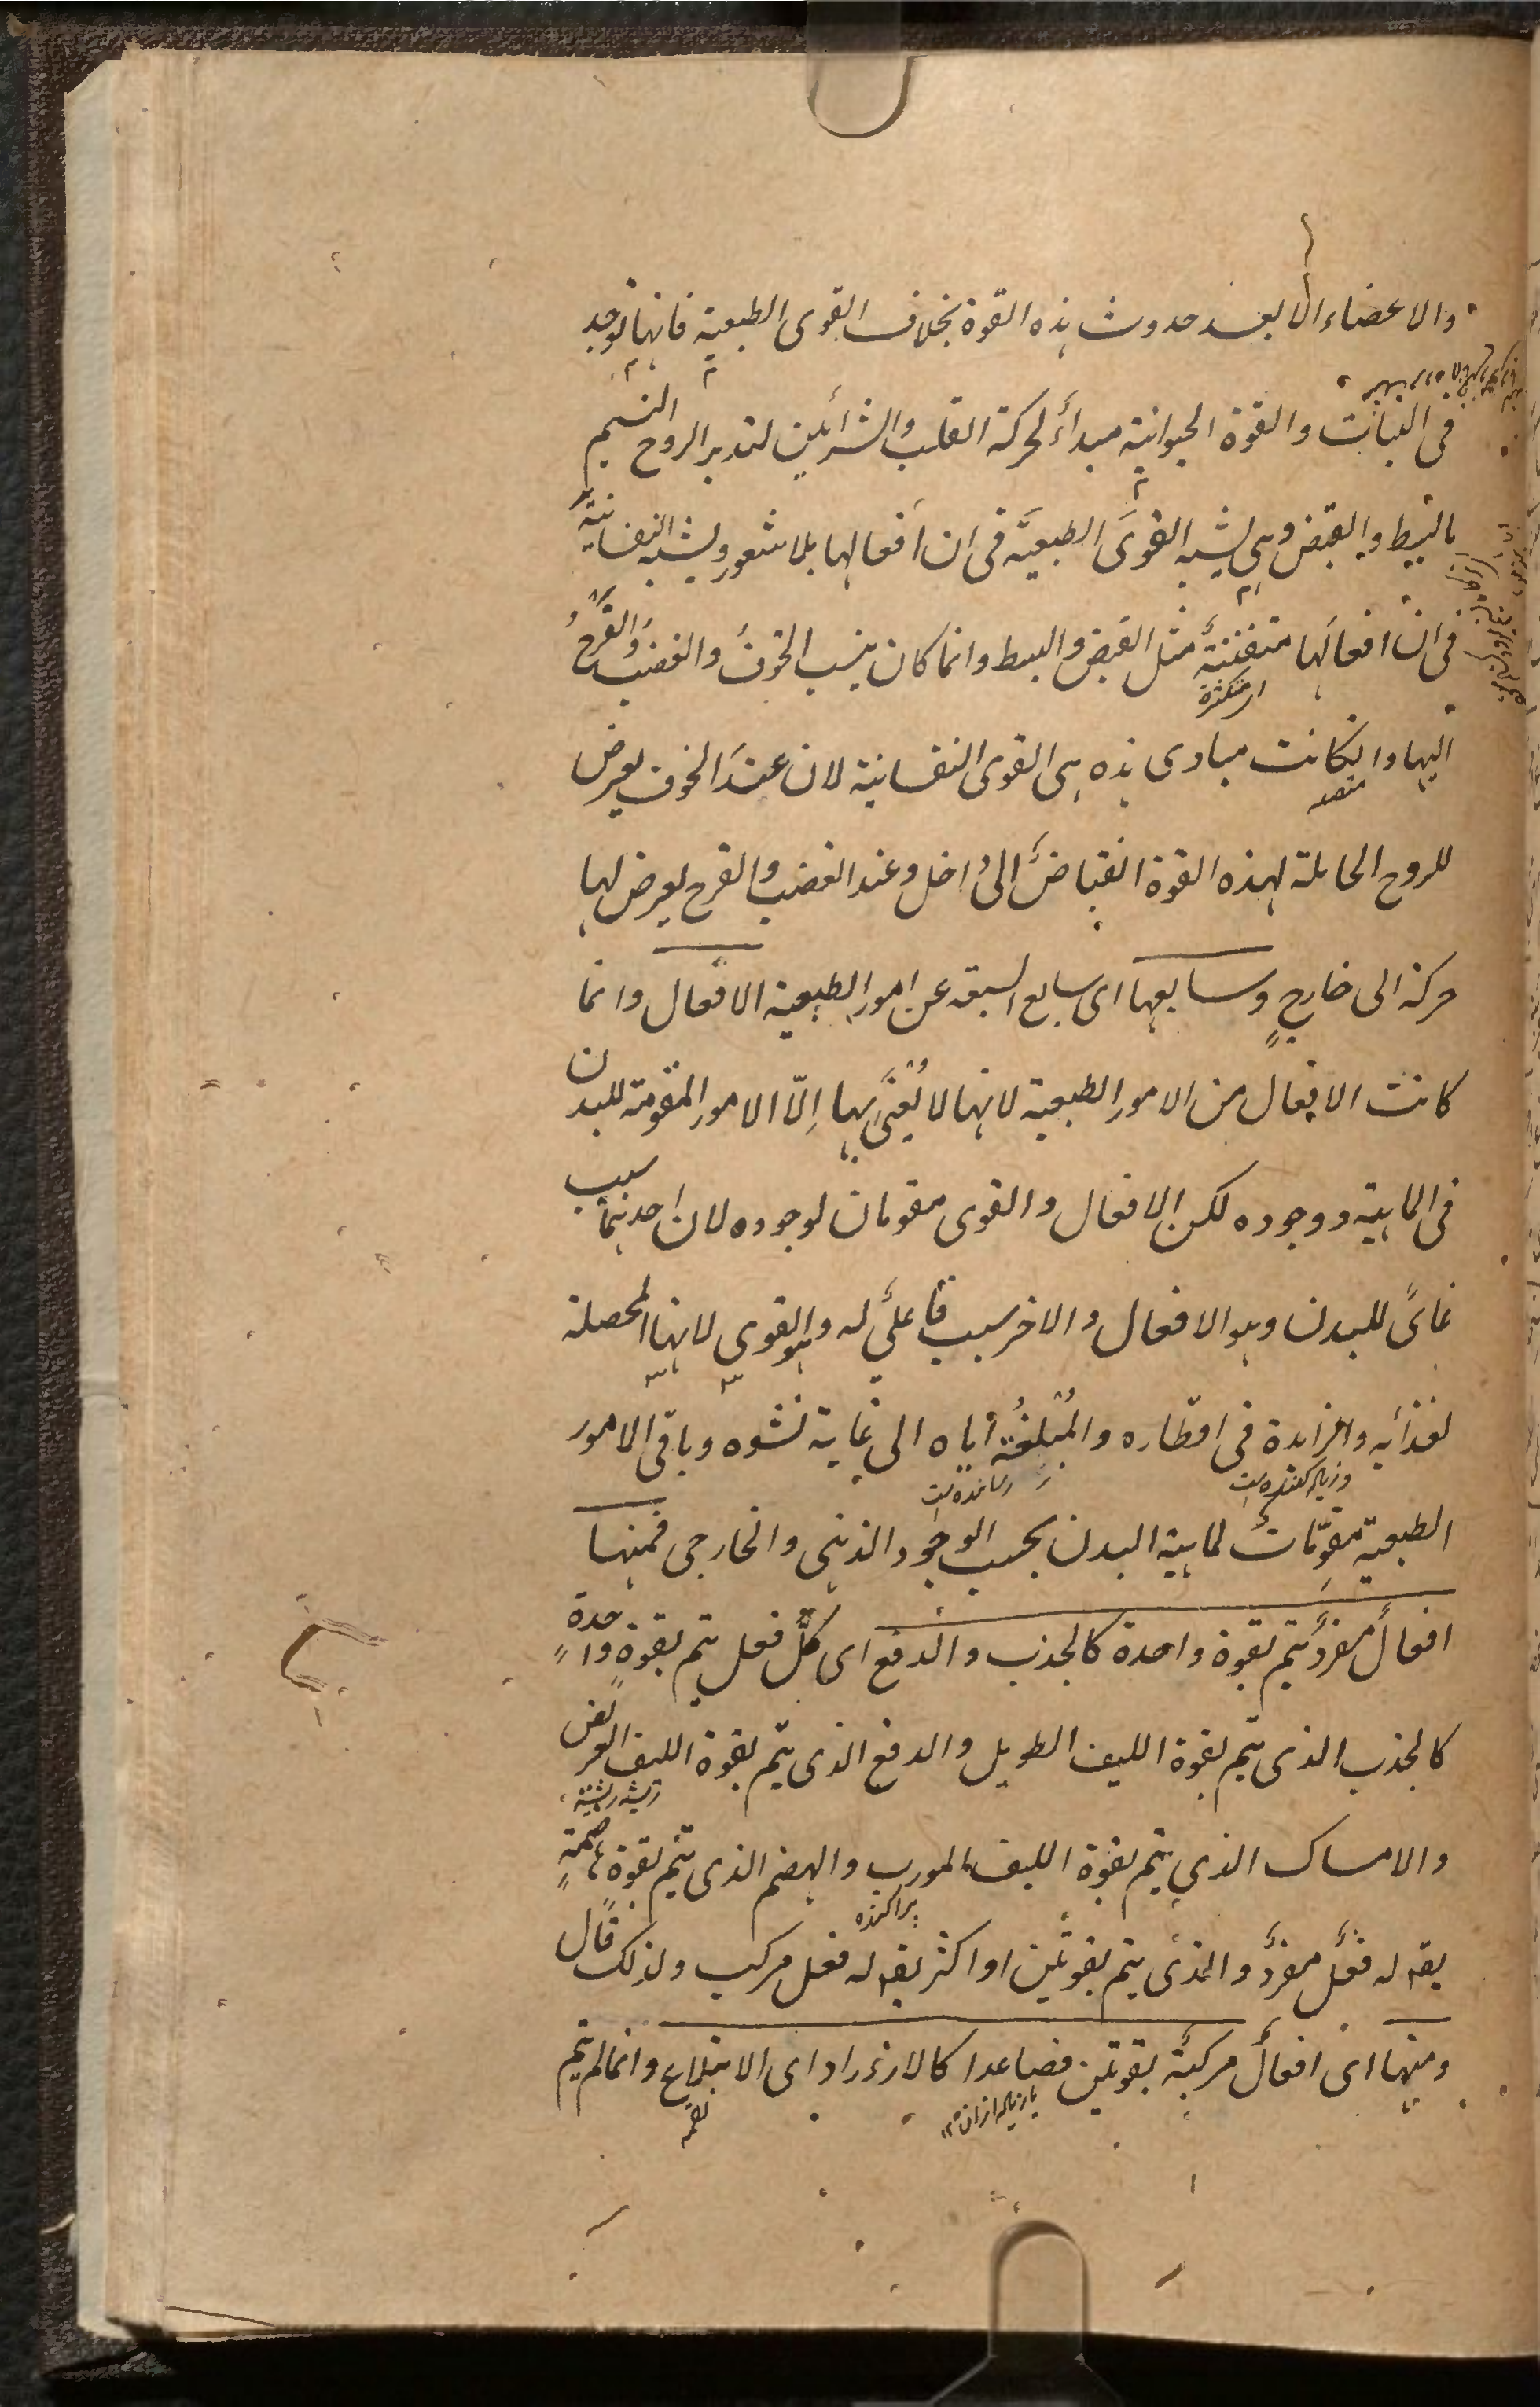 والاعضاء الا بعد حدوث هذه القوة بخلاف القوى الطبعية فانها توجد
فى النبات والقوة الحيوانية مبدأ لحركة القلب والشرائين لتدبر الروح النسيم
بالبسط والقبض وهى يشبه القوى الطبعية فى ان افعالها بلا شعور ويشبه النفسانية
فى ان افعالها متفننة مثل القبض والبسط وانما كان ينسب الخوف والغضب والفرح
اى متكثرة
اليها وانكانت مبادى هذه هى القوى النفسانية لان عند الخوف يعرض
للروح الحاملة لهذه القوة انقباض الى داخل وعند الغضب والفرح يعرض لها
حركة الى خارج وسابعها اى سابع السبعة عن امور الطبيعية الافعال وانما
كانت الافعال من الامور الطبعية لانها لا يُعنَى بها اِلّا الامور المقومة للبدن
فى الماهية ووجوده لكن الافعال والقوى مقومان لوجوده لان احدهما سبب
غائى للبدن وهو الافعال والاخر سبب فاعلى له وهو القوى لانها المحصلة
لغذائه والزائدة فى اقطاره والمُبلغة اياه الى غاية نشوه وباقى الامور
وزياده كننده است
رسانده است
الطبعية مقوّمات لماهية البدن بحسب الوجود الذهنى والخارجى فمنها
افعال مفرد يتم بقوة واحدة كالجذب والدفع اى كل فعل يتم بقوة واحدة
كالجذب الذى يتم بقوة الليف الطويل والدفع الذى يتم بقوة الليف العريض
والامساك الذى يتم بقوة الليف المورب والهضم الذى يتم بقوة هاضمة
پراكنده
يقه له فعل مفرد والذى يتم بقوتين او اكثر يقه له فعل مركب ولذلك قال
ومنها اى افعال مركبة بقوتين فصاعدا كالازدراد اى الابتلاع وانما لم يتم
يا زياده ازان
لقمه